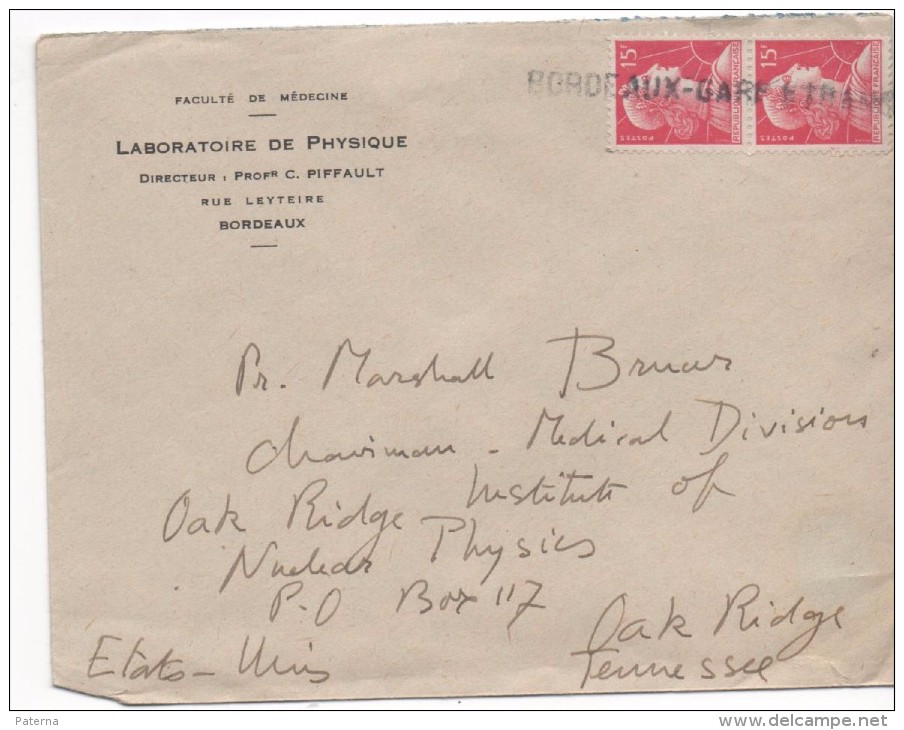 FACULTÉ DE MÉDECINE
LABORATOIRE DE PHYSIQUE
DIRECTEUR : PROFR C. PIFFAULT
RUE LEYTEIRE
BORDEAUX
BORDEAUX-GARE ETRANG
15F
POSTES
REPUBLIQUE FRANÇAISE
15F
POSTES
REPUBLIQUE FRANÇAISE
Pr. Marshall Brucer
Chairman - Medical Division
Oak Ridge Institute of
Nuclear Physics
P.O Box 117
Oak Ridge
Tennessee
Etats-Unis
Paterna
www.delcampe.net